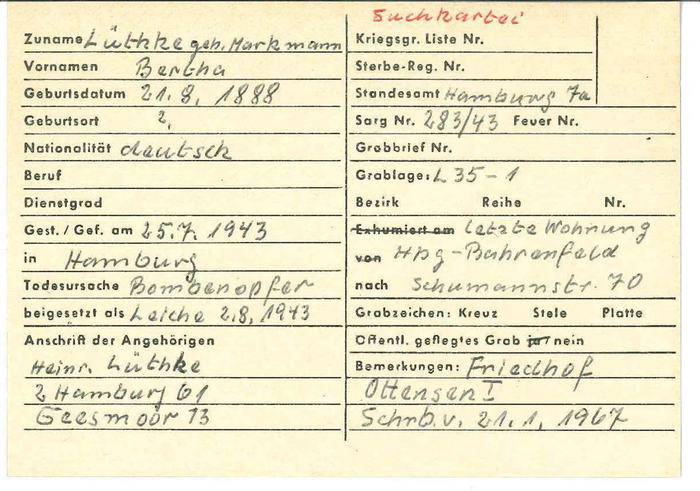 Suchkartei
Zuname Lüthke geb. Markmann
Vornamen Bertha
Geburtsdatum 21.8.1888
Geburtsort ?.
Nationalität deutsch
Beruf
Dienstgrad
Gest. / Gef. am 25.7.1943
in Hamburg
Todesursache Bombenopfer
beigesetzt als Leiche 2.8.1943
Anschrift der Angehörigen
Heinr. Lüthke
2 Hamburg 61
Geesmoor 13
Kriegsgr. Liste Nr.
Sterbe-Reg. Nr.
Standesamt Hamburg 7a
Sarg Nr. 283/43 Feuer Nr.
Grabbrief Nr.
Grablage: L 35-1
Bezirk Reihe Nr.
Exhumiert am letzte Wohnung
von Hbg-Bahrenfeld
nach Schumannstr. 70
Grabzeichen: Kreuz Stele Platte
Öffentl. gepflegtes Grab ja/nein
Bemerkungen: Friedhof
Ottensen I
Schrb. v. 21.1.1967